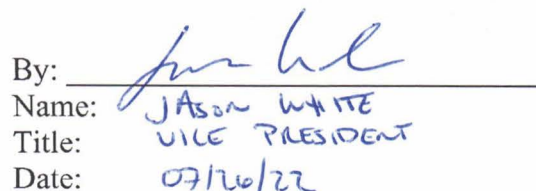 By:
Name: JASON WHITE
Title: VICE PRESIDENT
Date: 07/26/22